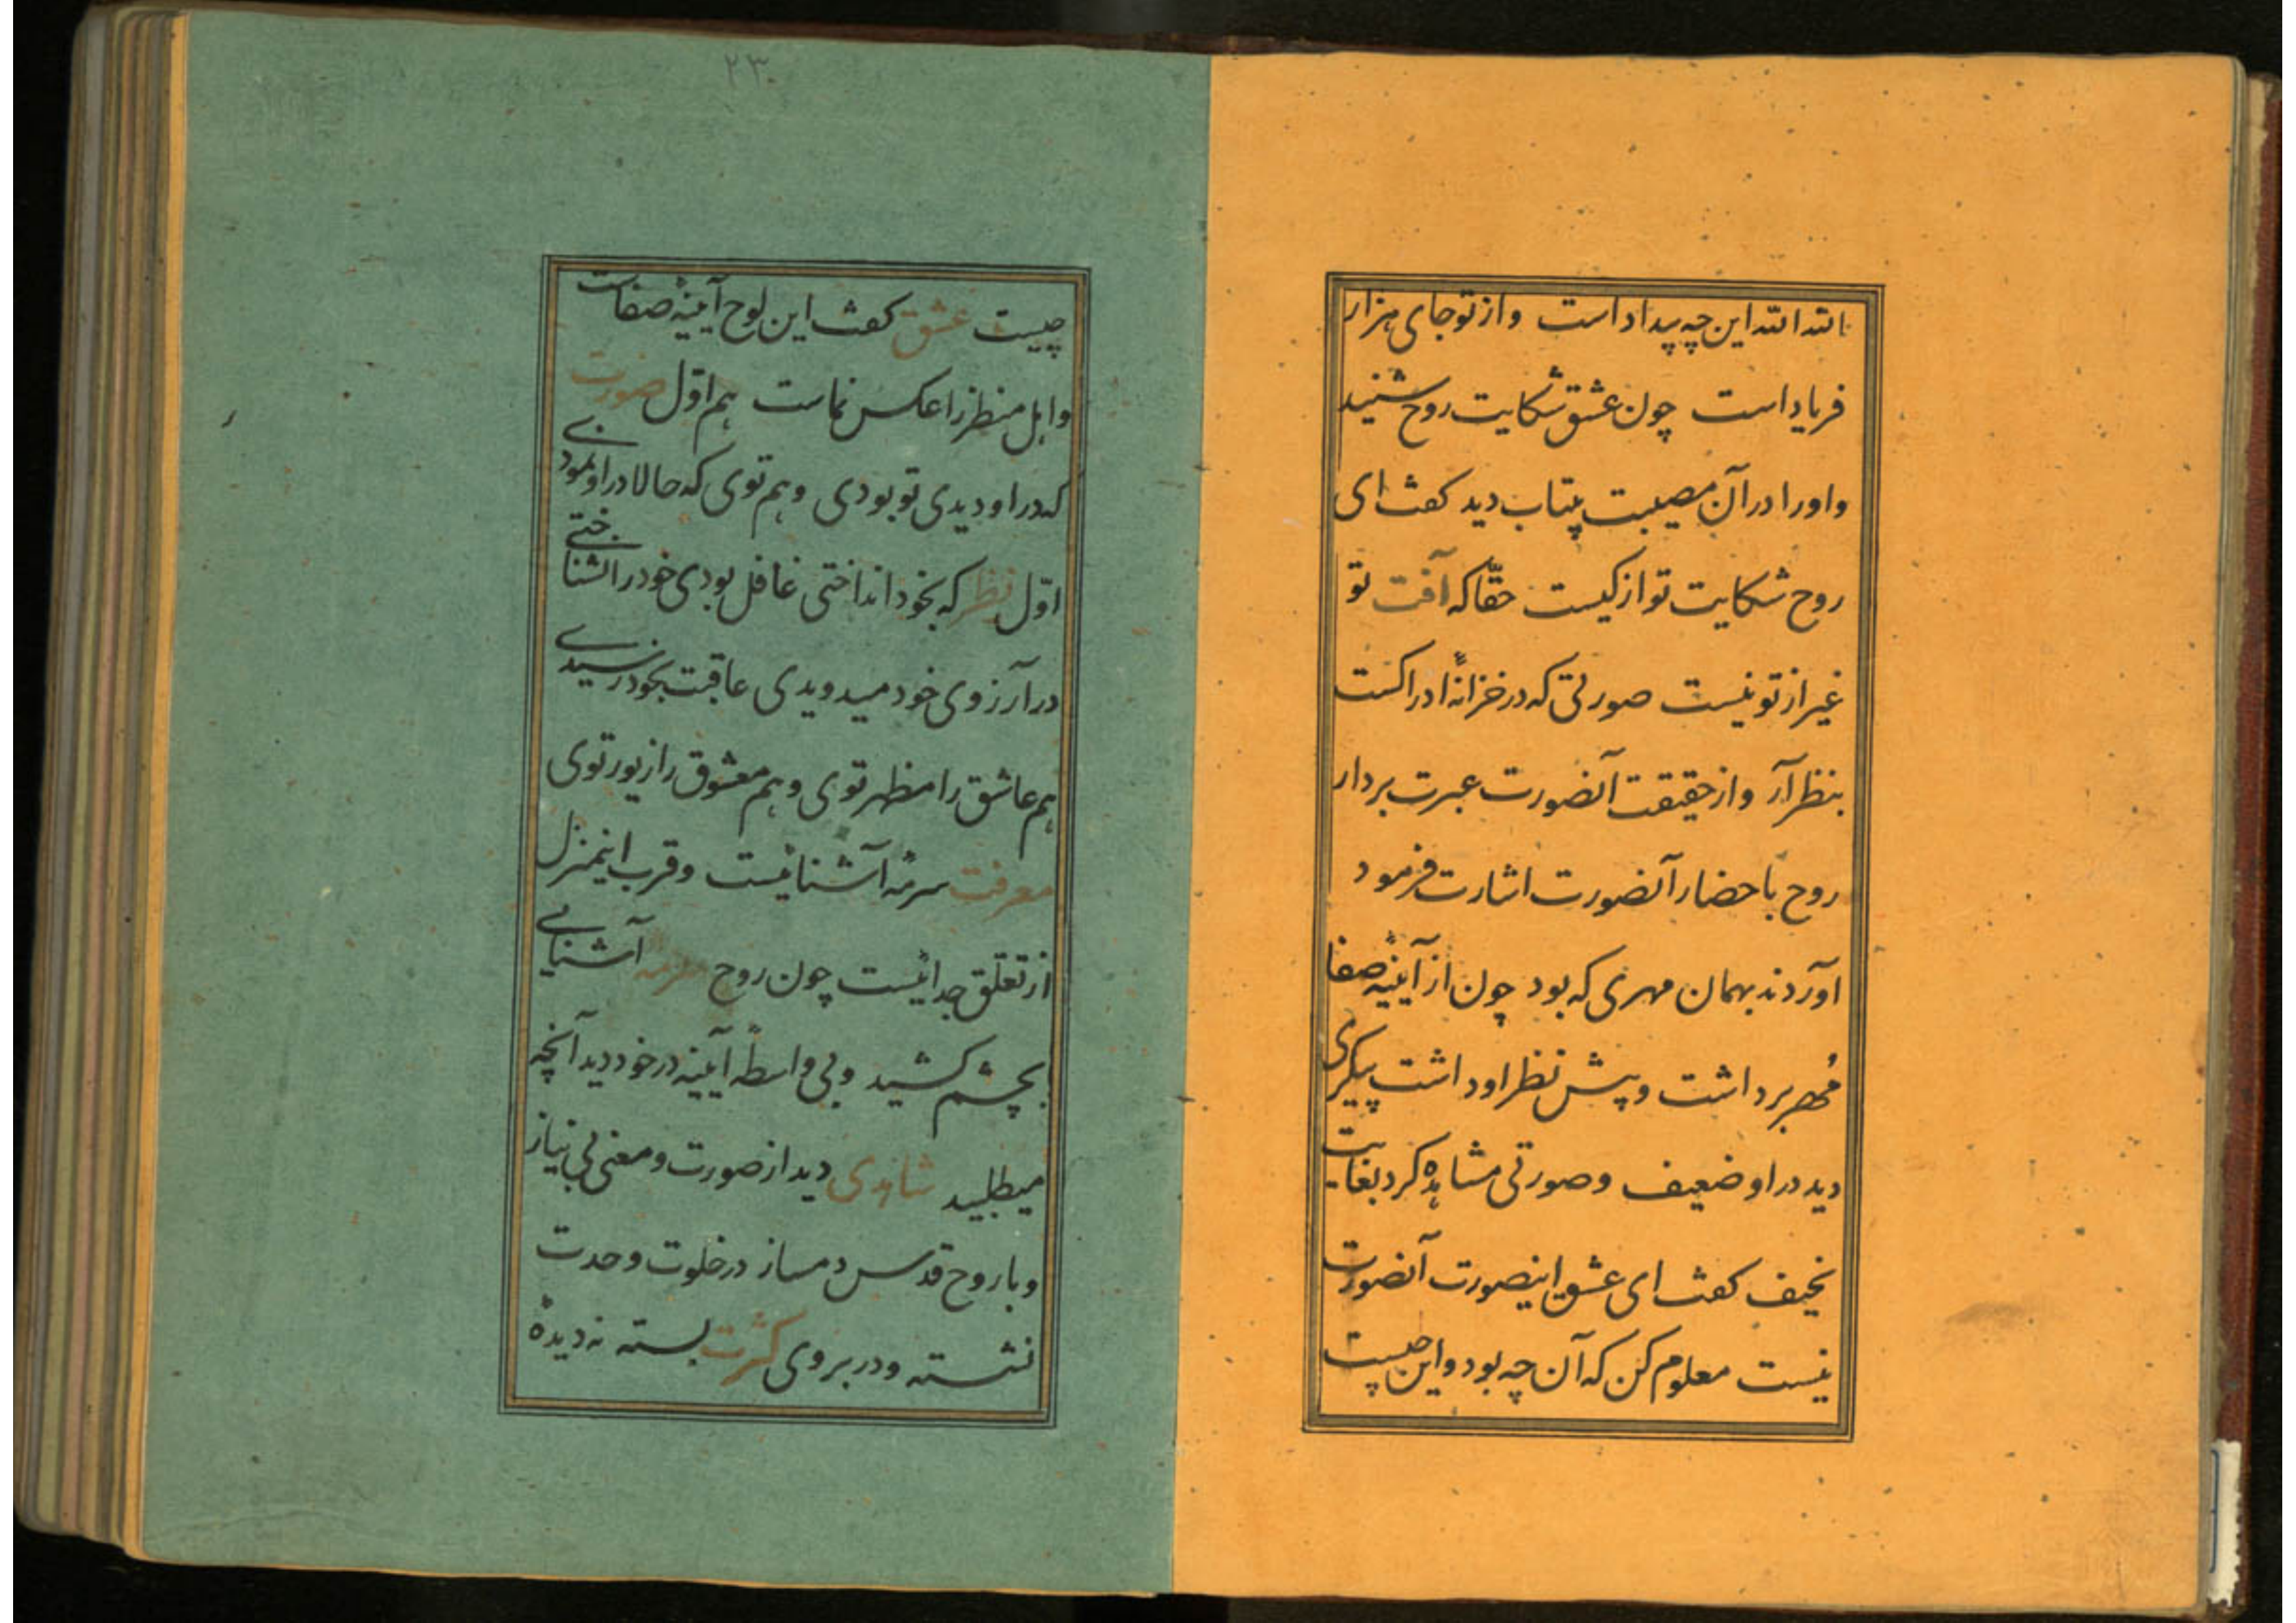 الله الله این چه بیداد است و از تو جای هزار
فریاد است چون عشق شکایت روح شنید
و او را در آن مصیبت بیتاب دید کفت ای
روح شکایت تو از کیست حقّا که آفت تو
غیر از تو نیست صورتی که در خزانهٔ ادراکست
بنظر آر و از حقیقت آنصورت عبرت بردار
روح باحضار آنصورت اشارت فرمود
آوردند بهمان مهری که بود چون از آیینهٔ صفا
مُهر برداشت و پیش نظر او داشت پیکری
دید در او ضعیف و صورتی مشاهده کرد بغایت
نحیف کفت ای عشق اینصورت آنصورت
نیست معلوم کن که آن چه بود و این چیست
۲۳
چیست عشق کفت این لوح آیینهٔ صفاست
و اهل منظر را عکس نماست هم اوّل صورت
که در او دیدی تو بودی و هم توی که حالا در او نمودی
اوّل نظر که بخود انداختی غافل بودی خود را نشناختی
در آرزوی خود میدویدی عاقبت بخود رسیدی
هم عاشق را مظهر توی و هم معشوق را زیور توی
معرفت سرمهٔ آشناییست و قرب اینمنزل
از تعلّق جداییست چون روح سرمه آشنایی
بچشم کشید و بی واسطهٔ آیینه در خود دید آنچه
میطلبید شاهدی دید از صورت و معنی بی نیاز
و با روح قدس دمساز در خلوت وحدت
نشسته و در بروی کثرت بسته نه دیدهٔ